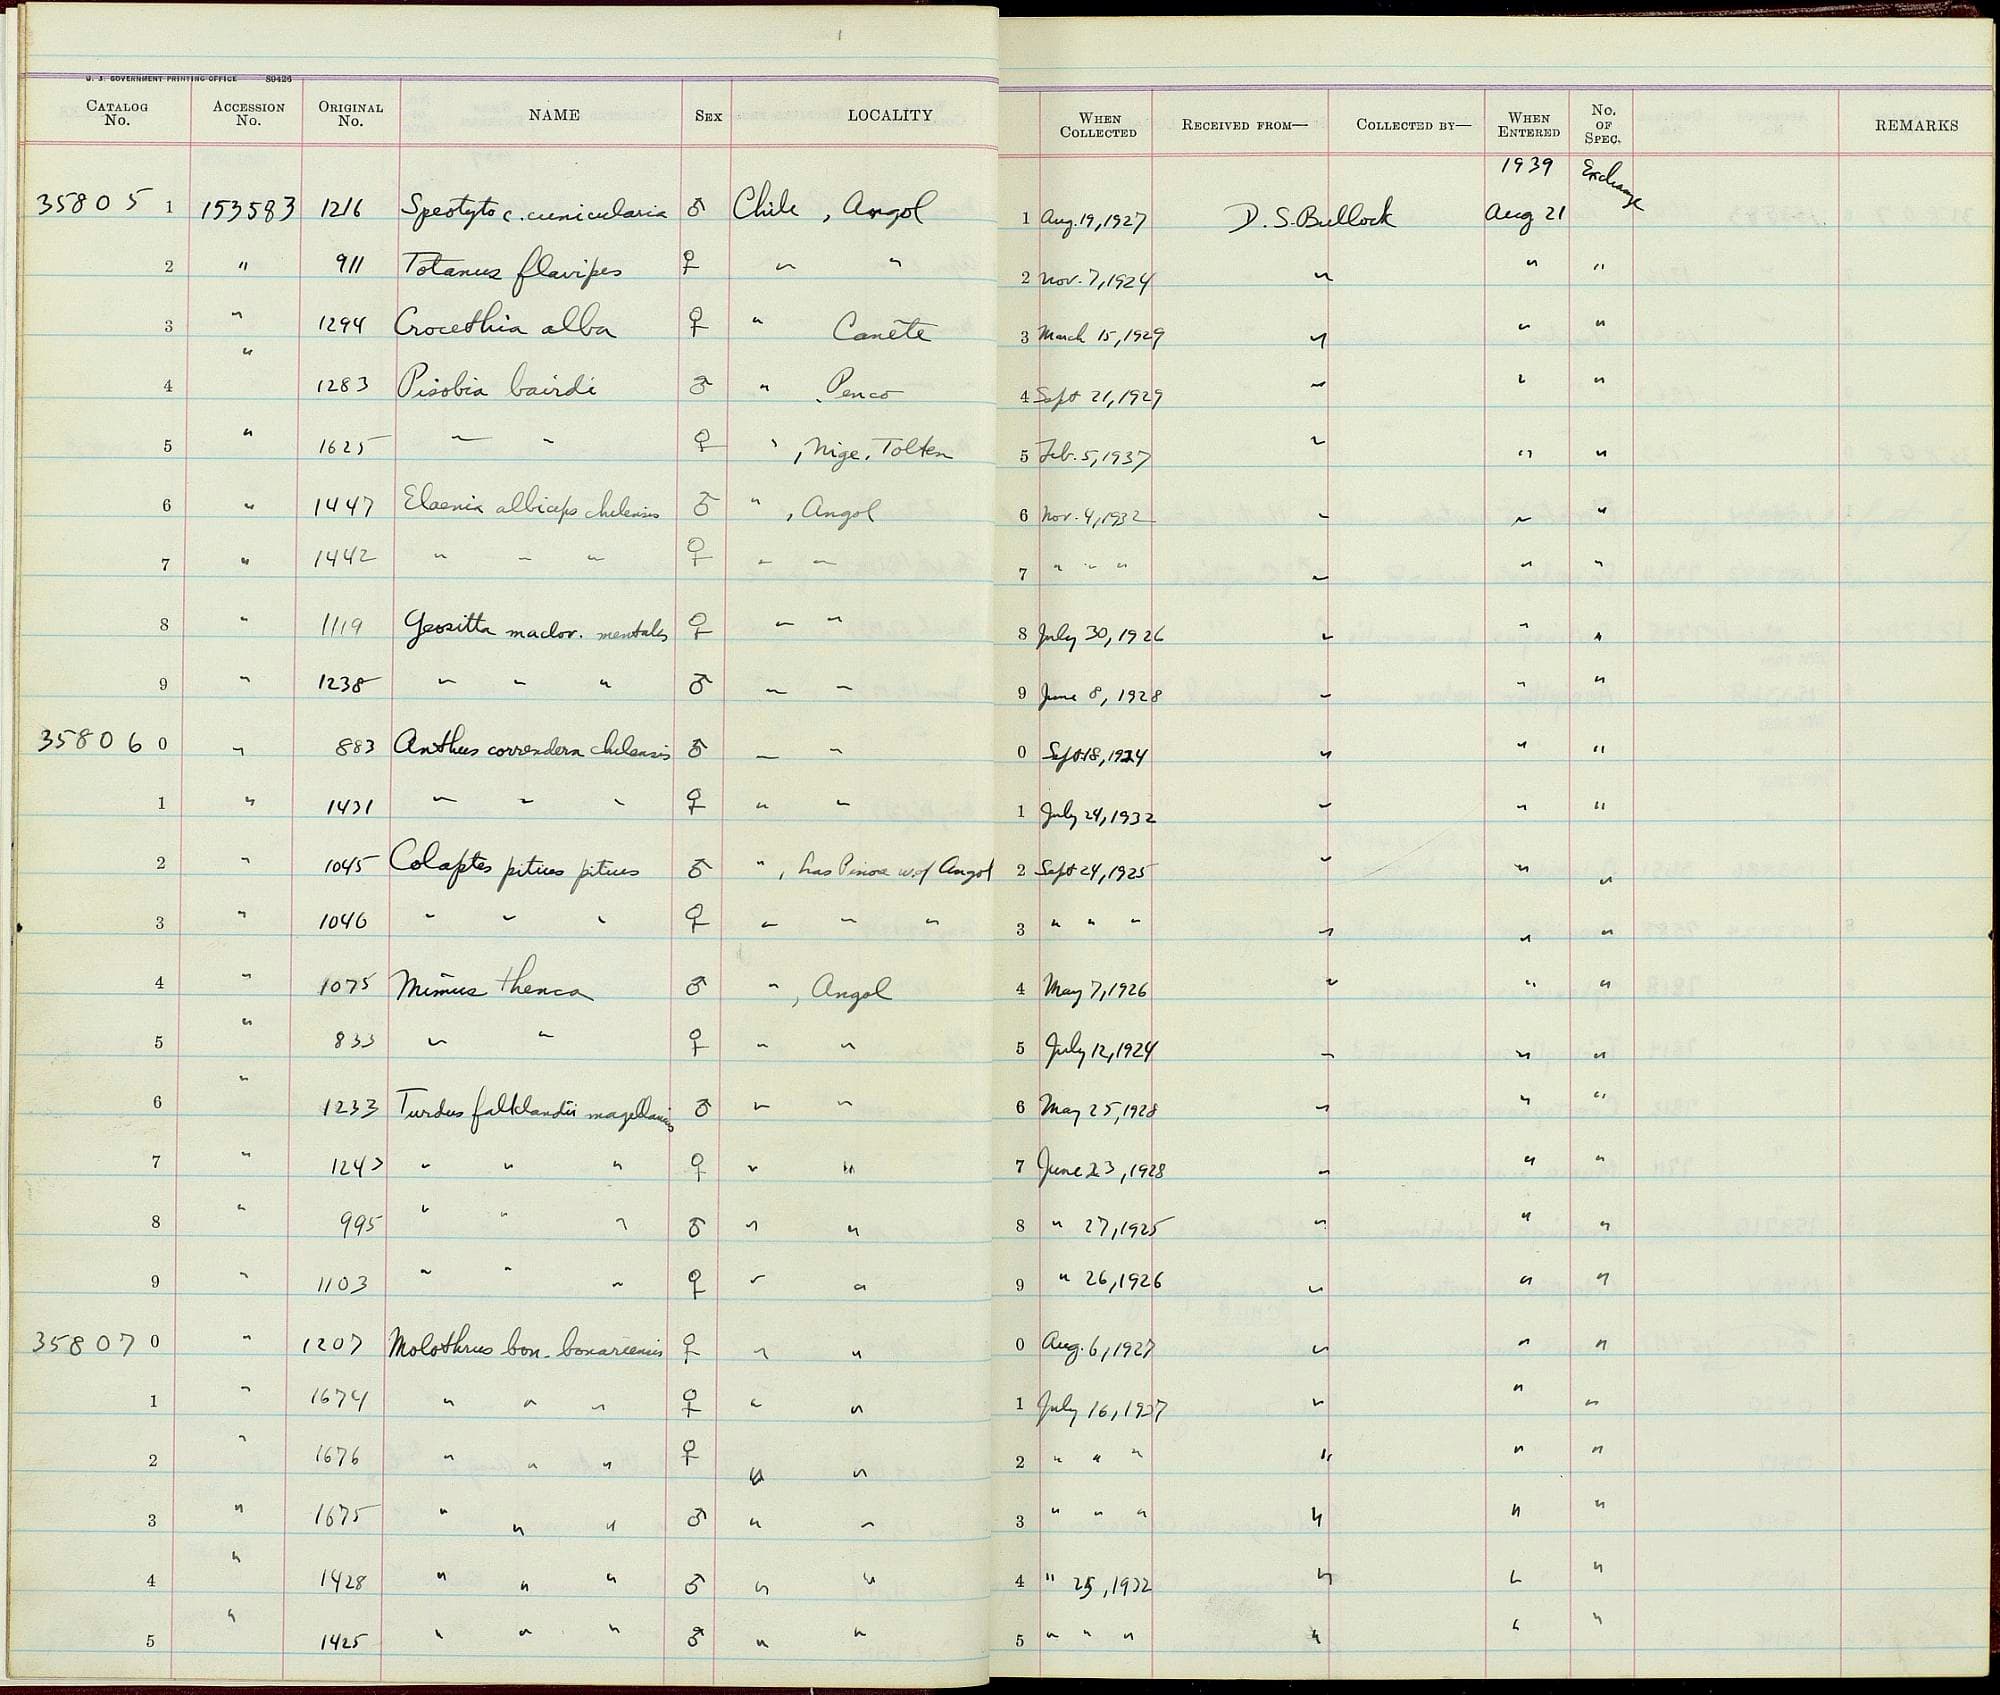 1
U. S. GOVERNMENT PRINTING OFFICE 80426
CATALOG No. ACCESSION No. ORIGINAL No. NAME SEX LOCALITY WHEN COLLECTED RECEIVED FROM— COLLECTED BY— WHEN ENTERED No. OF SPEC. REMARKS
1939 Exchange
35805 1 153583 1216 Speotyto c. cunicularia ♂ Chile, Angol 1 Aug. 19, 1927 D. S. Bullock Aug 21
2 " 911 Totanus flavipes ♀ " " 2 Nov. 7, 1924 " " "
3 " 1294 Crocethia alba ♀ " Canete 3 March 15, 1929 " " "
4 " 1283 Pisobia bairdi ♂ " Penco 4 Sept 21, 1929 " " "
5 " 1625 " " ♀ " , Nige. Tolten 5 Feb. 5, 1937 " " "
6 " 1447 Elaenia albiceps chilensis ♂ " , Angol 6 Nov. 4, 1932 " " "
7 " 1442 " " " ♀ " " 7 " " " " " "
8 " 1119 Geositta maclov. ♀ " " 8 July 30, 1926 " " "
9 " 1238 " " " ♂ " " 9 June 8, 1928 " " "
35806 0 " 883 Anthus correndera chilensis ♂ " " 0 Sept 18, 1924 " " "
1 " 1431 " " " ♀ " " 1 July 24, 1932 " " "
2 " 1045 Colaptes pitius pitius ♂ " , Las w. of Angol 2 Sept 24, 1925 " " "
3 " 1046 " " " ♀ " " " 3 " " " " " "
4 " 1075 Mimus thenca ♂ " , Angol 4 May 7, 1926 " " "
5 " 833 " " ♀ " " 5 July 12, 1924 " " "
6 " 1233 Turdus falklandii magellanicus ♂ " " 6 May 25, 1928 " " "
7 " 1243 " " " ♀ " " 7 June 23, 1928 " " "
8 " 995 " " " ♂ " " 8 " 27, 1925 " " "
9 " 1103 " " " ♀ " " 9 " 26, 1926 " " "
35807 0 " 1207 Molothrus bon. bonariensis ♀ " " 0 Aug. 6, 1927 " " "
1 " 1674 " " " ♀ " " 1 July 16, 1937 " " "
2 " 1676 " " " ♀ " " 2 " " " " " "
3 " 1675 " " " ♂ " " 3 " " " " " "
4 " 1428 " " " ♂ " " 4 " 25, 1932 " " "
5 " 1425 " " " ♂ " " 5 " " " " " "